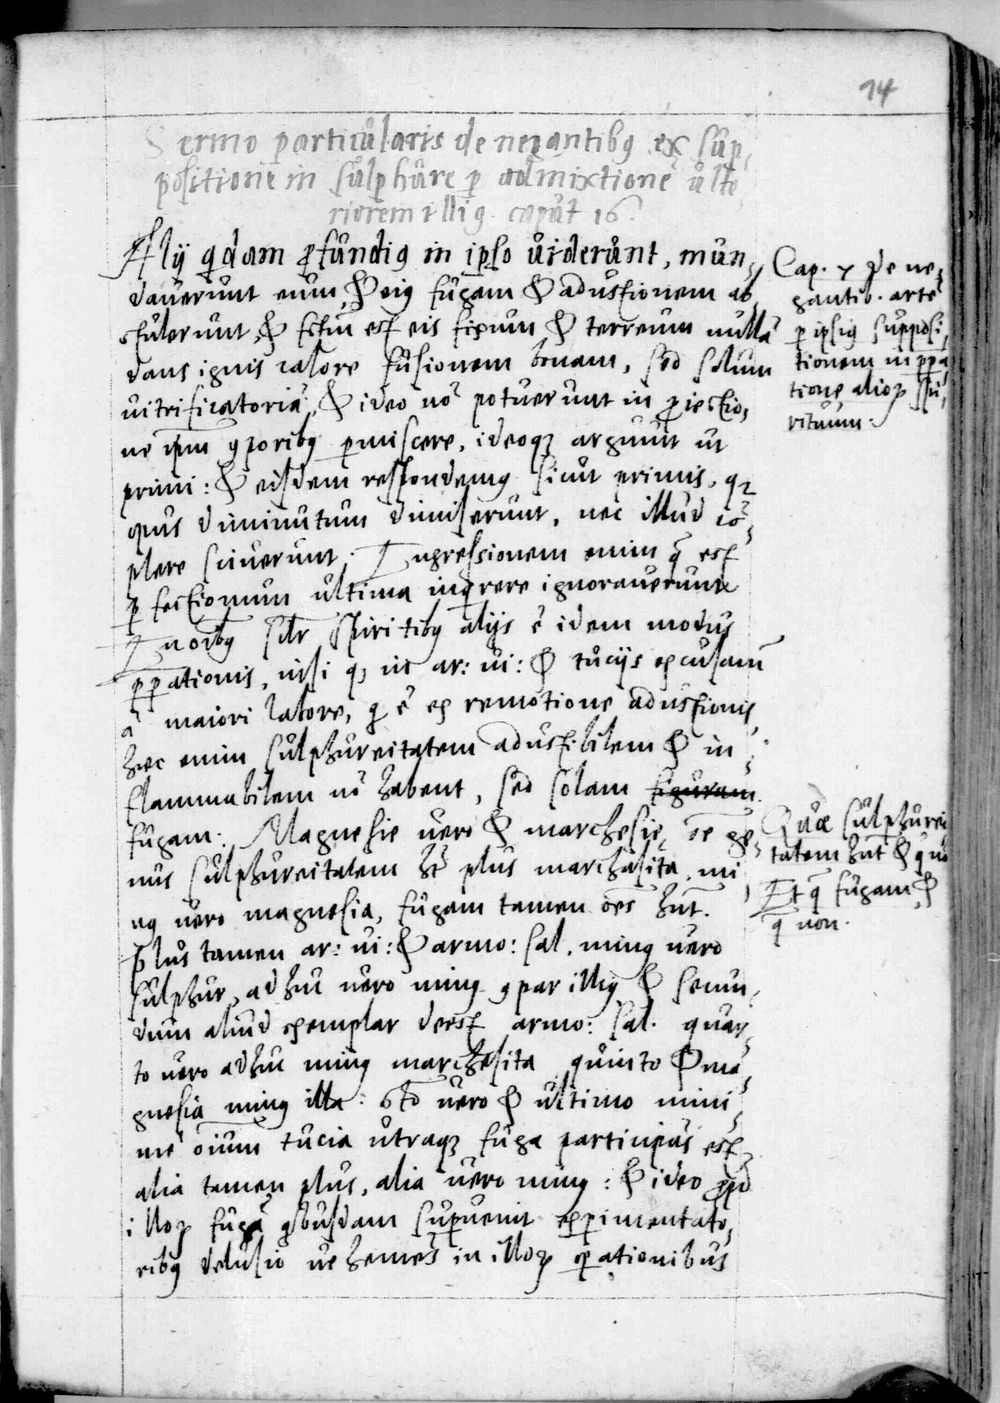 14
Sermo particularis de negantibꝰ ex sup,
positione in sulphure ꝑ admixtionē ulte
riorem illiꝰ. caput 16.
Alij qdam ꝓfundiꝰ in ipso uiderunt, mun,
dauerunt eum, & eiꝰ fugam & adustionem ab,
stulerunt, & fctū est eis fixum & terreum nullā
dans ignis calore fusionem bonam, sed solum
uitrificatoriā, & ideo nō potuerunt in ꝓiectio,
ne ipm ꝯporibꝰ ꝑmiscere, ideoqꝫ arguunt ut
primi: & eisdem respondemꝰ sicut primis, qꝛ
opus diminutum dimiserunt, nec illud cō,
plere sciuerunt. Ingressionem enim q̄ est
ꝑfectionum ultima inqrere ignorauerunt
In oībꝰ sīlr spiritibꝰ alijs ē idem modus
p̄ꝑationis, nisi qꝫ in ar: ui: & tucijs excusam̄
a maiori labore, q ē ex remotione adustionis
hæc enim sulphureitatem adustibilem & in,
flammabilem nō habent, sed solam figuram
fugam: Magnesie uero & marchesię, oē ge,
nus sulphureitatem hēt plus marchasita, mi
nꝰ uero magnesia, fugam tamen oēs hn̄t.
Plus tamen ar: ui: & armo: sal. minꝰ uero
sulphur, adhuc uero minꝰ ꝯpar illiꝰ & secun,
dum aliud exemplar deest armo: sal. quar,
to uero adhuc minꝰ marchesita quinto & ma,
gnesia minꝰ illa: 6to uero & ultimo mini,
mē oīum tucia utraqꝫ fuga particĭpās est
alia tamen plus, alia uero minꝰ: & ideo ꝓp
illoꝝ fugā qbusdam superuenit experimentato,
ribꝰ delusio uehemēs in illoꝝ operationibus
Cap. 7 De ne,
gantib. artē
ꝑ ipsiꝰ supposi,
tionem in p̄pa
tione alioꝝ spi,
rituum.
Quæ sulphurei
tatem hn̄t & quæ
Et q̄ fugam, &
q̄ non.